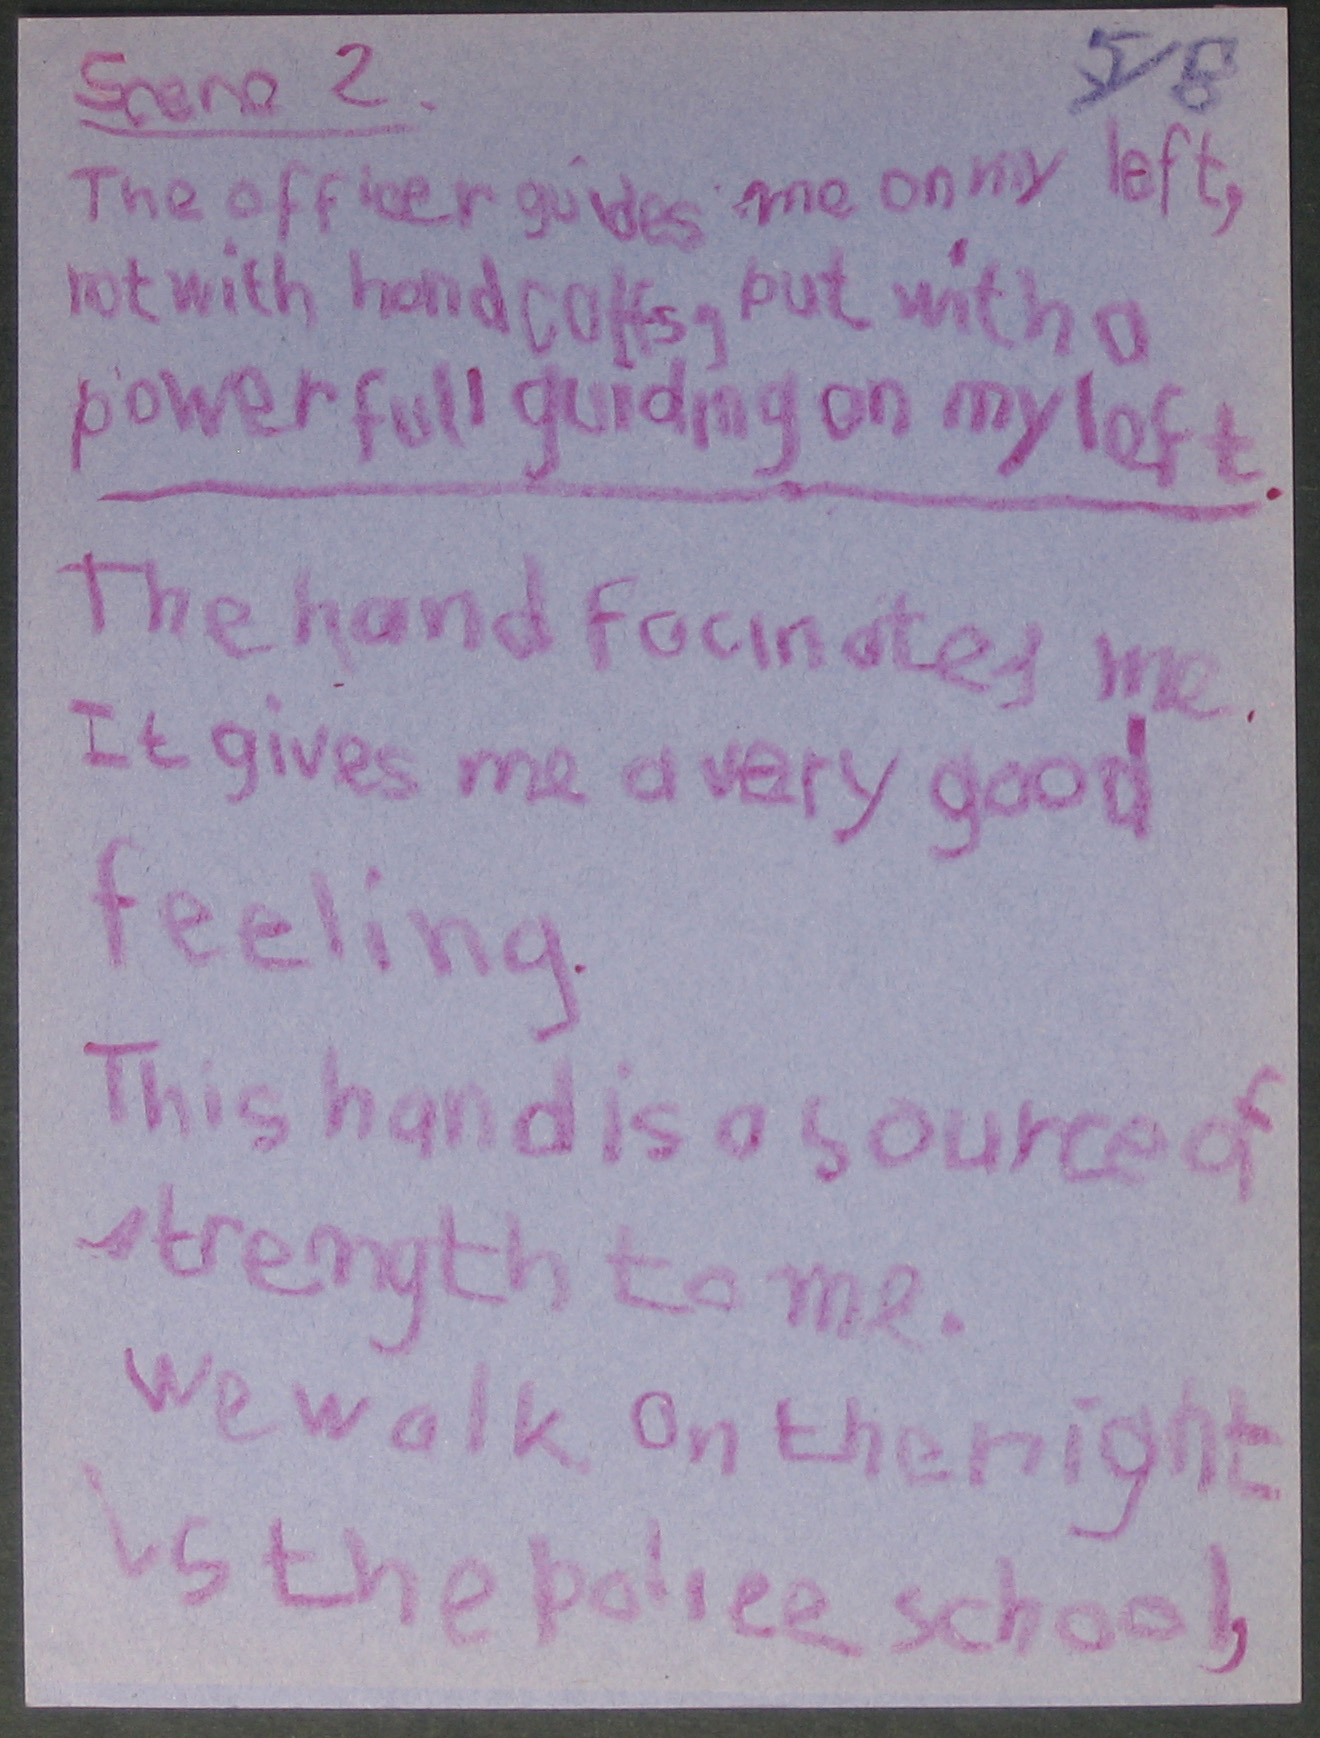 Scene 2.
5/8
The officer guides me on my left,
not with handcaffs, but with a
powerfull guiding on my left.
The hand facinates me.
It gives me a very good
feeling.
This hand is a source of
strength to me.
We walk on the right
is the police school,